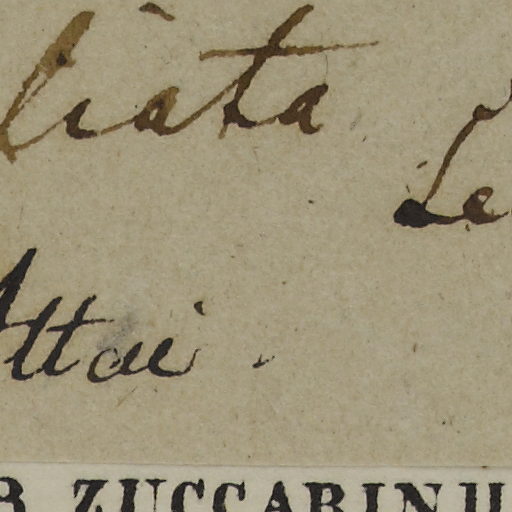 liata Le
Attai
B ZUCCARINII